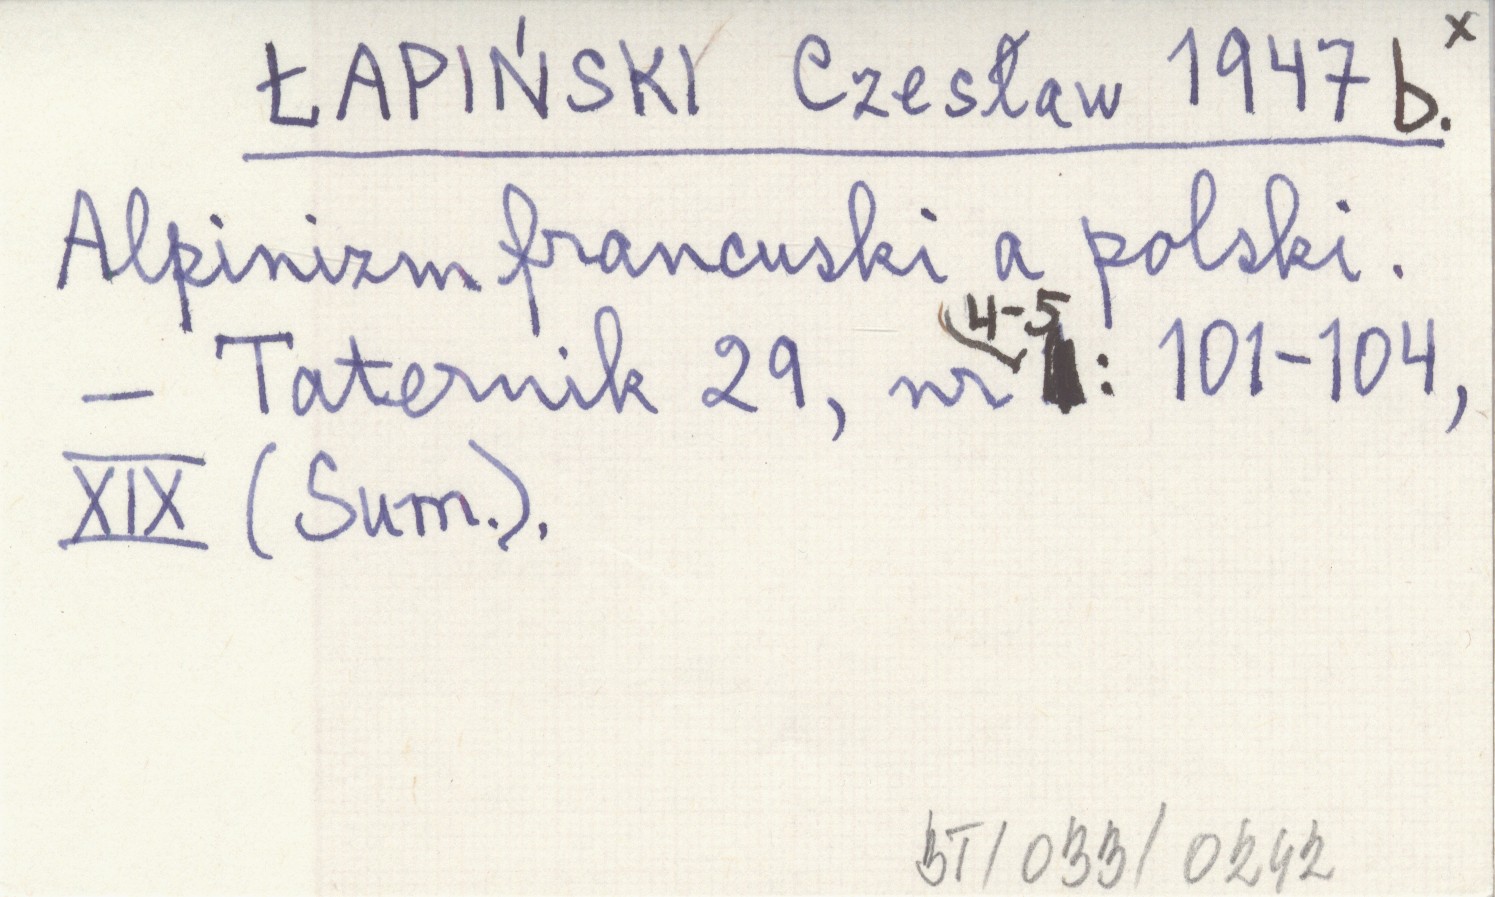 ŁAPIŃSKI Czesław 1947 b. x
Alpinizm francuski a polski.
— Taternik 29, nr 4-5: 101-104,
XIX (Sum.).
BT/033/0242